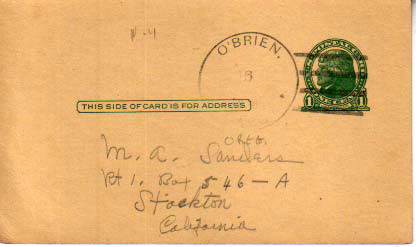 N-4
O'BRIEN.
18
1 1
THIS SIDE OF CARD IS FOR ADDRESS
OREG.
M. A. Sanders
Rt 1. Box 546-A
Stockton
California